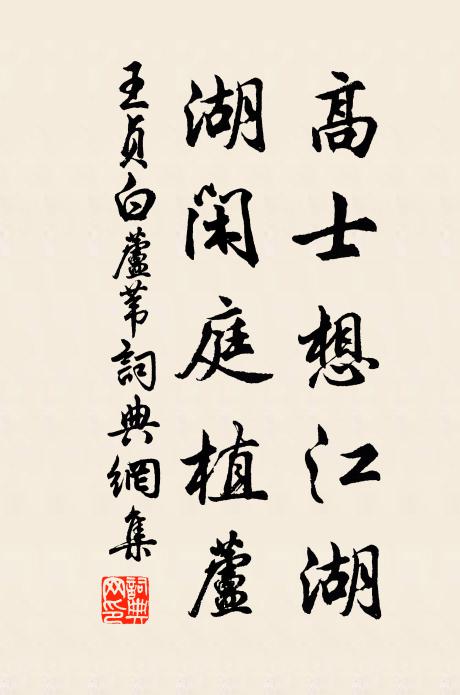 高士想江湖
湖閑庭植蘆
王貞白蘆葦詞典網集
詞典網印